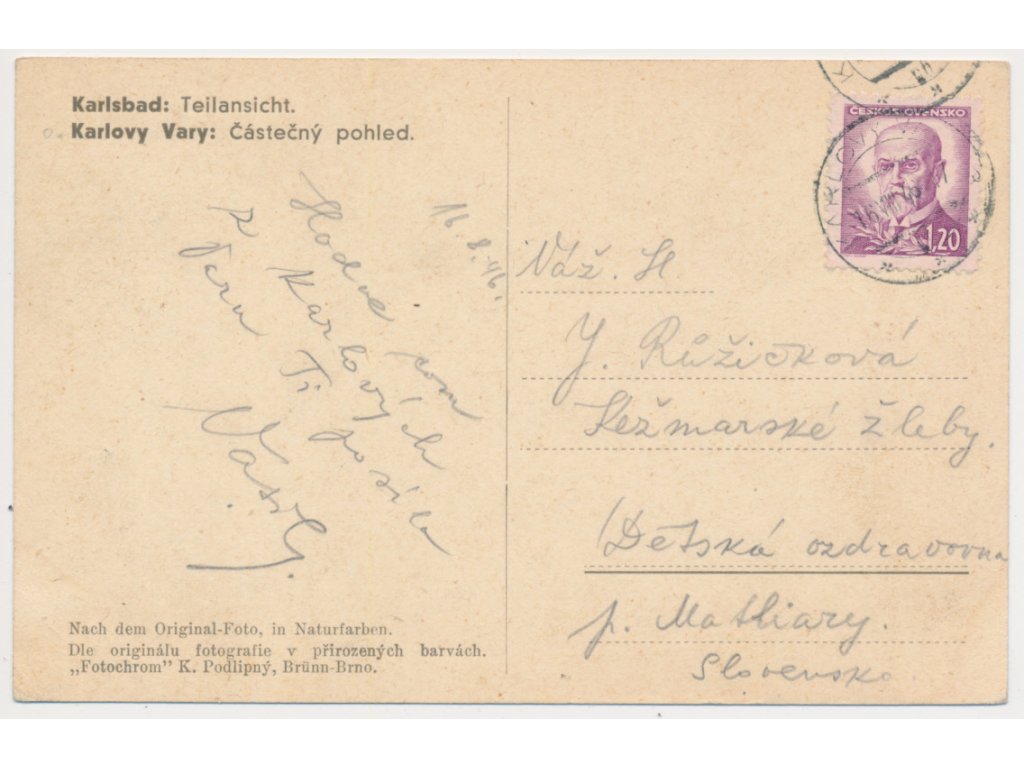 Karlsbad: Teilansicht.
Karlovy Vary: Částečný pohled.
16.8.46.
z Karlových
Ti
ČESKOSLOVENSKO
1,20
KARLOVY VARY
Váž. Sl
J. Růžičková
Kežmarské Žleby.
Detská ozdravovna
p. Matliary.
Slovensko.
Nach dem Original-Foto, in Naturfarben.
Dle originálu fotografie v přirozených barvách.
„Fotochrom" K. Podlipný, Brünn-Brno.